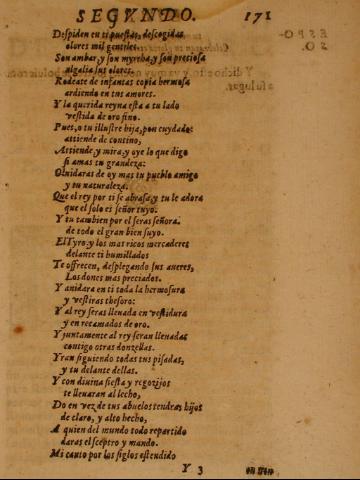 SEGVNDO. 171
Despiden en ti puestas, descogidas
olores mil gentiles.
Son ambar, y son myrrha, y son preciosa
algalia sus olores.
Rodeate de infantas copia hermosa
ardiendo en tus amores.
Y la querida reyna està a tu lado
vestida de oro fino.
Pues, o tu illustre hija, pon cuydado:
attiende de contino,
Attiende, y mira, y oye lo que digo
si amas tu grandeza:
Olvidaras de oy mas tu pueblo amigo
y tu naturaleza.
Que el rey por ti se abrasa, y tu le adora
que el solo es señor tuyo.
Y tu tambien por el seras señora.
de todo el gran bien suyo.
El Tyro, y los mas ricos mercaderes
delante ti humillados
Te offrecen, desplegando sus averes,
Los dones mas preciados.
Y anidara en ti toda la hermosura
y vestiras thesoro:
Y al rey seras llevada en vestidura
y en recamados de oro.
Y juntamente al rey seran llevadas
contigo otras donzellas.
Yran siguiendo todas tus pisadas,
y tu delante dellas.
Y con divina fiesta y regozijos
te llevaran al lecho,
Do en vez de tus abuelos tendras hijos
de claro, y alto hecho,
A quien del mundo todo repartido
daras el sceptro y mando.
Mi canto por los siglos estendido
Y 3